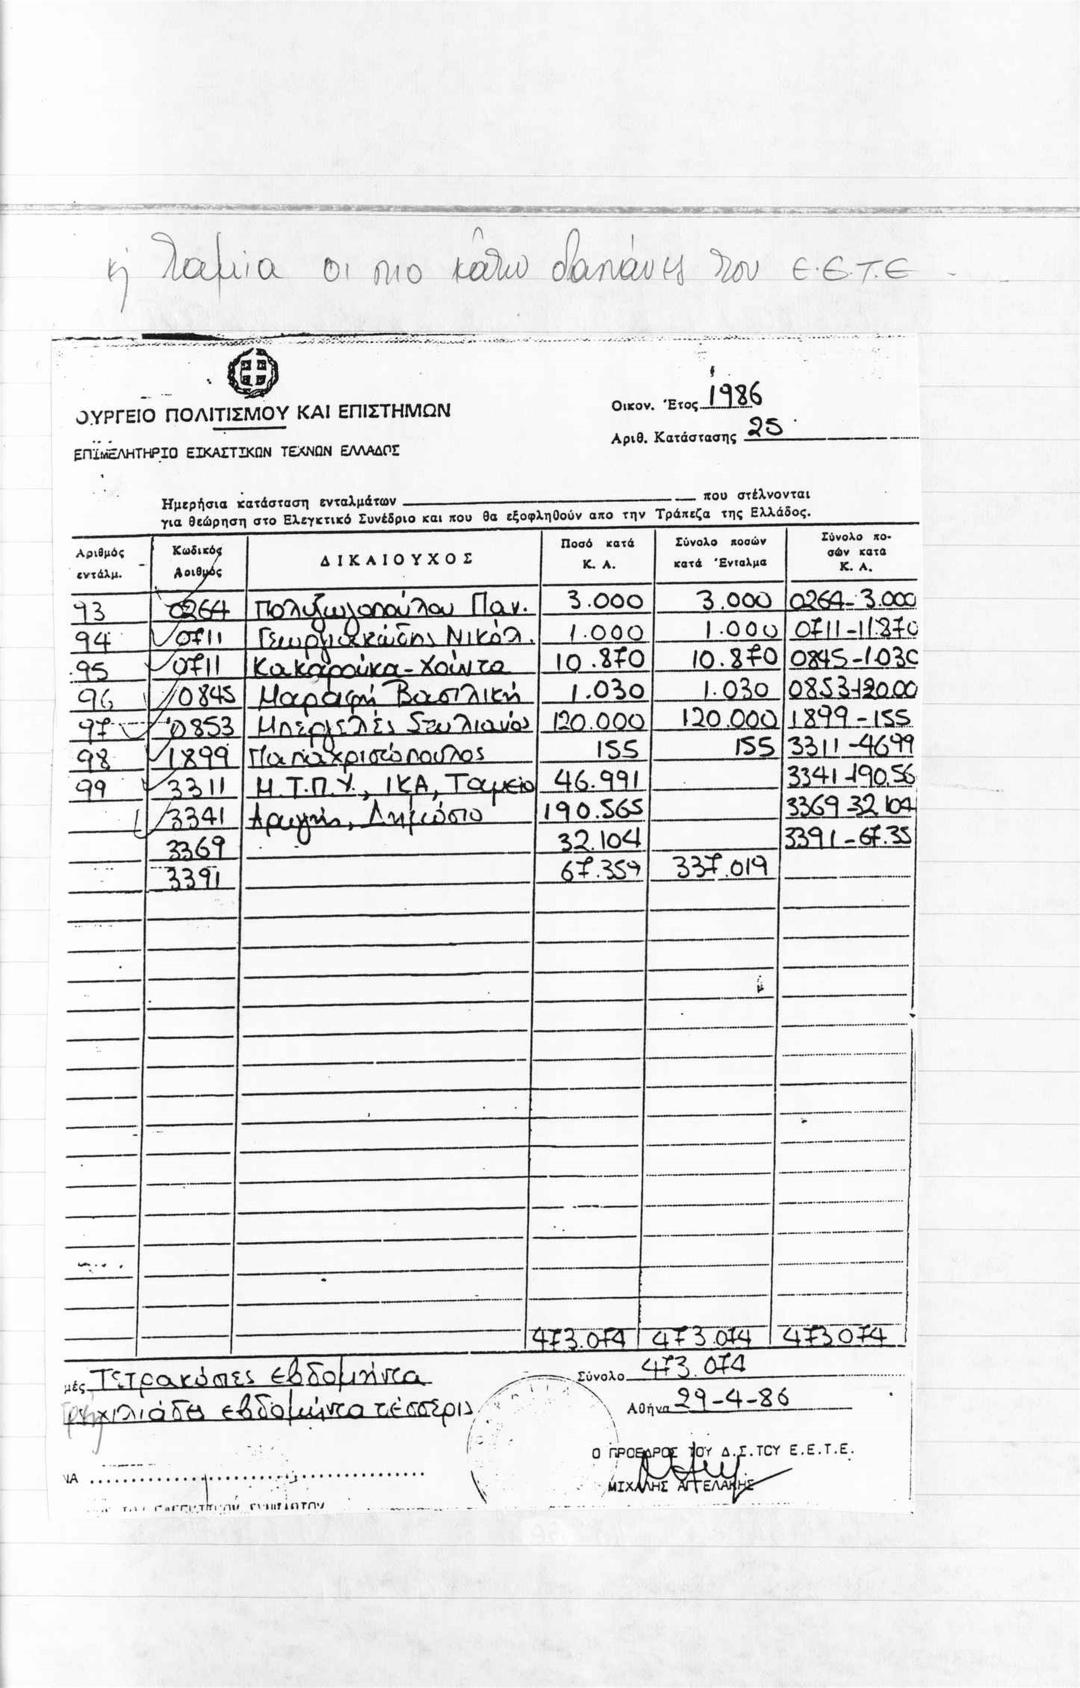 ή Ταμεία οι πιο κάτω δαπάνες του Ε.Ε.Τ.Ε
ΟΥΡΓΕΙΟ ΠΟΛΙΤΙΣΜΟΥ ΚΑΙ ΕΠΙΣΤΗΜΩΝ
ΕΠΙΜΕΛΗΤΗΡΙΟ ΕΙΚΑΣΤΙΚΩΝ ΤΕΧΝΩΝ ΕΛΛΑΔΟΣ
Οικον. Έτος 1986
Αριθ. Κατάστασης 25
Ημερήσια κατάσταση ενταλμάτων που στέλνονται
για θεώρηση στο Ελεγκτικό Συνέδριο και που θα εξοφληθούν απο την Τράπεζα της Ελλάδος.
Αριθμός εντάλμ. Κωδικός Αριθμός ΔΙΚΑΙΟΥΧΟΣ Ποσό κατά Κ. Α. Σύνολο ποσών κατά Ένταλμα Σύνολο ποσών κατα Κ. Α.
93 0264 Πολυζωγοπούλου Παν. 3.000 3.000 0264-3.000
94 0711 Γεωργιακώδης Νικόλ. 1.000 1.000 0711-11.870
95 0711 Κακαρούκα-Χούντα 10.870 10.870 0845-1.030
96 0845 Μαραφή Βασιλική 1.030 1.030 0853-120.00
97 0853 Μπεργελές Στυλιανός 120.000 120.000 1899-155
98 1899 Παπαχριστόπουλος 155 155 3311-4699
99 3311 Μ.Τ.Π.Υ., ΙΚΑ, Ταμείο 46.991 3341-190.56
3341 Αρωγής, Δημόσιο 190.565 3369 32.104
3369 32.104 3391-67.35
3391 67.359 337.019
473.074 473.074 473.074
μές Τετρακόσιες εβδομήντα
χιλιάδες εβδομήντα τέσσερις
Σύνολο 473.074
Αθήνα 29-4-86
Ο ΠΡΟΕΔΡΟΣ ΤΟΥ Δ.Σ. ΤΟΥ Ε.Ε.Τ.Ε.
ΜΙΧΑΛΗΣ ΑΓΓΕΛΑΚΗΣ
ΝΑ